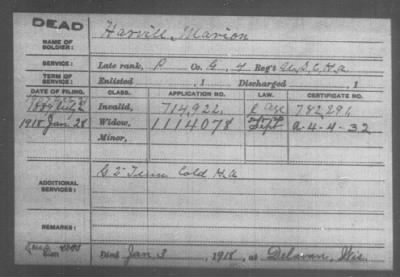 DEAD
NAME OF SOLDIER: Harvill, Marion
SERVICE: Late rank, P Co. G, 4 Reg't U.S.C.H.A.
TERM OF SERVICE: Enlisted , 1 Discharged , 1
DATE OF FILING. CLASS. APPLICATION NO. LAW. CERTIFICATE NO.
Invalid, 714,922, 782,291,
1918 Jan 28 Widow, 1114078 Sept A-4-4-32
Minor,
ADDITIONAL SERVICES: G 2" Tenn Cold H.A
REMARKS:
Died Jan. 3, 1918, at Delavan, Wis.